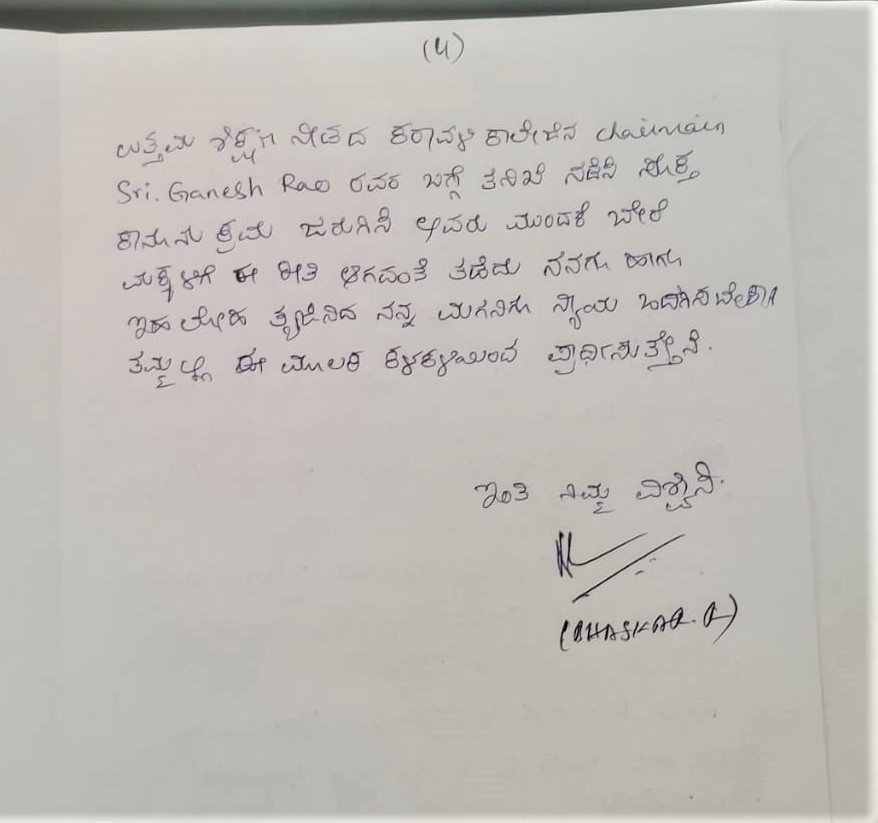 (4)
ಉತ್ತಮ ಶಿಕ್ಷಣ ನೀಡದ ಕರಾವಳಿ ಕಾಲೇಜಿನ chairmain
Sri. Ganesh Rao ರವರ ಬಗ್ಗೆ ತನಿಖೆ ನಡೆಸಿ ಸೂಕ್ತ
ಕಾನೂನು ಕ್ರಮ ಜರುಗಿಸಿ ಅವರು ಮುಂದಕೆ ಬೇರೆ
ಮಕ್ಕಳಿಗೆ ಈ ರೀತಿ ಆಗದಂತೆ ತಡೆದು ನನಗು ಹಾಗು
ಇಹ ಲೋಹ ತ್ಯಜಿಸಿದ ನನ್ನ ಮಗನಿಗು ನ್ಯಾಯ ಒದಗಿಸಬೇಕಾಗಿ
ತಮ್ಮಲ್ಲಿ ಈ ಮೂಲಕ ಕಳಕಳಿಯಿಂದ ಪ್ರಾರ್ಥಿಸುತ್ತೇನೆ.
ಇಂತಿ ನಿಮ್ಮ ವಿಶ್ವಾಸಿ.
(BHASKAR. R)